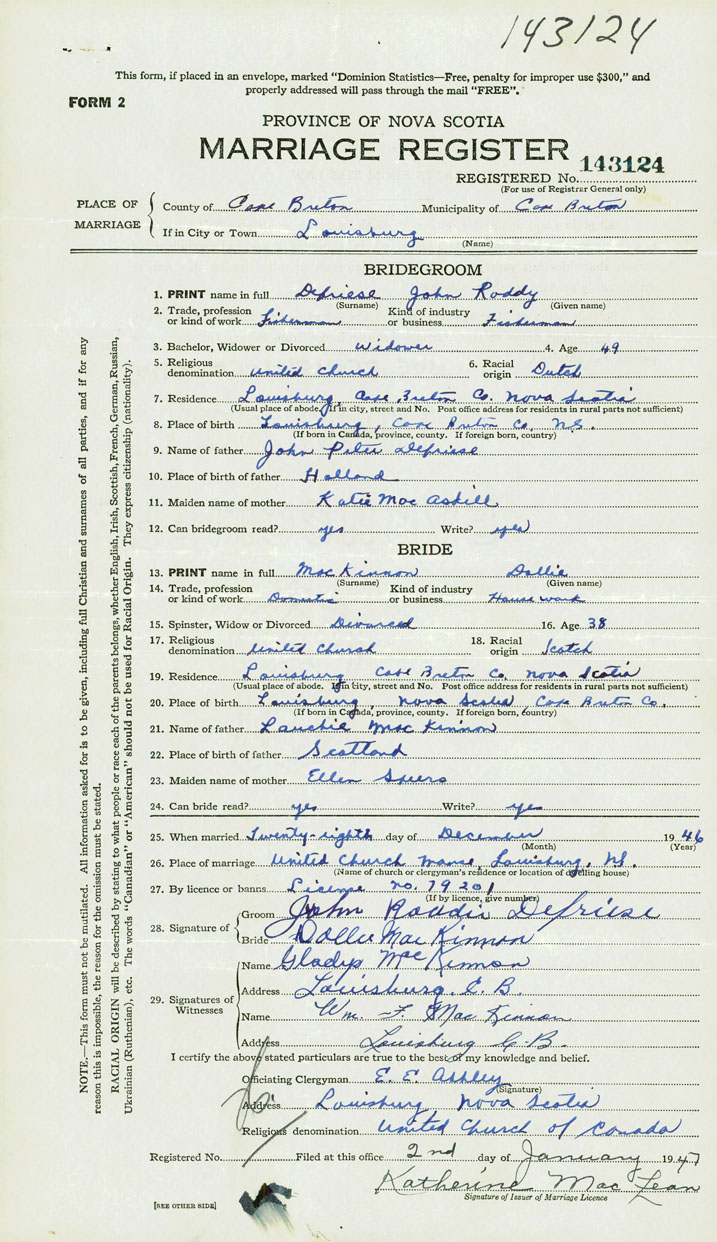 143124
This form, if placed in an envelope, marked "Dominion Statistics—Free, penalty for improper use $300," and
properly addressed will pass through the mail "FREE".
FORM 2
PROVINCE OF NOVA SCOTIA
MARRIAGE REGISTER
REGISTERED No. 143124
(For use of Registrar General only)
PLACE OF MARRIAGE
County of Cape Breton Municipality of Cape Breton
If in City or Town Louisburg
(Name)
BRIDEGROOM
1. PRINT name in full Defriese John Roddy
(Surname) (Given name)
2. Trade, profession or kind of work Fisherman Kind of industry or business Fisherman
3. Bachelor, Widower or Divorced Widower 4. Age 49
5. Religious denomination United Church 6. Racial origin Dutch
7. Residence Louisburg, Cape Breton Co. Nova Scotia
(Usual place of abode. If in city, street and No. Post office address for residents in rural parts not sufficient)
8. Place of birth Louisburg, Cape Breton Co, N.S.
(If born in Canada, province, county. If foreign born, country)
9. Name of father John Peter Defriese
10. Place of birth of father Holland
11. Maiden name of mother Katie Mac Askill
12. Can bridegroom read? yes Write? yes
BRIDE
13. PRINT name in full Mac Kinnon Dollie
(Surname) (Given name)
14. Trade, profession or kind of work Domestic Kind of industry or business House work
15. Spinster, Widow or Divorced Divorced 16. Age 38
17. Religious denomination United Church 18. Racial origin Scotch
19. Residence Louisburg Cape Breton Co. Nova Scotia
(Usual place of abode. If in city, street and No. Post office address for residents in rural parts not sufficient)
20. Place of birth Louisburg, Nova Scotia Cape Breton Co.
(If born in Canada, province, county. If foreign born, country)
21. Name of father Lauchie Mac Kinnon
22. Place of birth of father Scotland
23. Maiden name of mother Ellen Spers
24. Can bride read? yes Write? yes
25. When married Twenty-eighth day of December 1946
(Month) (Year)
26. Place of marriage United Church Manse, Louisburg, N.S.
(Name of church or clergyman's residence or location of dwelling house)
27. By licence or banns License no. 79201
(If by licence, give number)
28. Signature of
Groom John Roddie Defriese
Bride Dollie Mac Kinnon
29. Signatures of Witnesses
Name Gladys Mac Kinnon
Address Louisburg C. B.
Name Wm. F. Mac Kinnon
Address Louisburg C. B.
I certify the above stated particulars are true to the best of my knowledge and belief.
Officiating Clergyman E. E. Ashley
(Signature)
Address Louisburg Nova Scotia
Religious denomination United Church of Canada
Registered No. Filed at this office 2nd day of January 1947
Katherine Mac Lean
Signature of Issuer of Marriage Licence
[SEE OTHER SIDE]
NOTE.—This form must not be mutilated. All information asked for is to be given, including full Christian and surnames of all parties, and if for any
reason this is impossible, the reason for the omission must be stated.
RACIAL ORIGIN will be described by stating to what people or race each of the parents belongs, whether English, Irish, Scottish, French, German, Russian,
Ukrainian (Ruthenian), etc. The words "Canadian" or "American" should not be used for Racial Origin. They express citizenship (nationality).